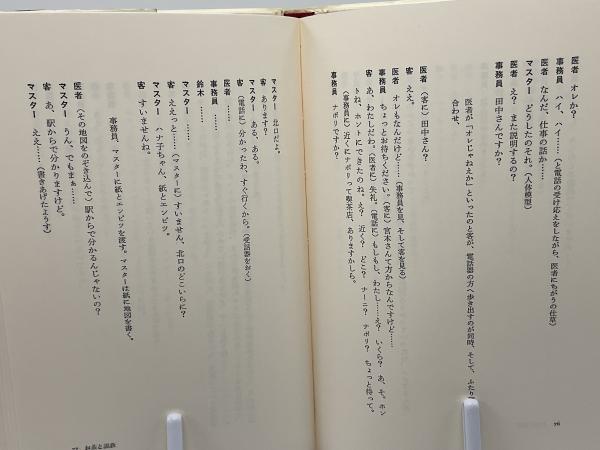 医者　オレか？
事務員　ハイ、ハイ……（と電話の受け応えをしながら、医者にちがうの仕草）
医者　なんだ、仕事の話か……
マスター　どうしたのそれ。（人体模型）
医者　え？　また説明するの？
事務員　田中さんですか？
医者が「オレじゃねえか」といったのと客が、電話器の方へ歩き出すのが同時、そして、ふたり
合わせ、
医者　（客に）田中さん？
客　ええ。
医者　オレもなんだけど……（事務員を見、そして客を見る）
事務員　ちょっとお待ちください。（客に）宮本さんて方からなんですけど……
客　あ、わたしだわ。（医者に）失礼。（電話に）もしもし、わたし……え？　いくら？　あ、そ。ホン
トね、ホントにできたのね。え？　近く？　どこ？　ナーニ？　ナポリ？　ちょっと待って。
（事務員に）近くにナポリって喫茶店、ありますかしら。
事務員　ナポリですか？
76
マスター　北口だよ。
客　あります？
マスター　ある、ある。
客　（電話に）分かったわ、すぐ行くから。（受話器をおく）
医者　……
事務員　……
鈴木　……
マスター　……
客　ええっと……（マスターに）すいません、北口のどこいらに？
マスター　ハナ子ちゃん、紙とエンピツ。
客　すいませんね。
事務員、マスターに紙とエンピツを渡す。マスターは紙に地図を書く。
医者　（その地図をのぞき込んで）駅からで分かるんじゃないの？
マスター　うん。でもまぁ……
客　あ、駅からで分かりますけど。
マスター　ええ……（書きあげたようす）